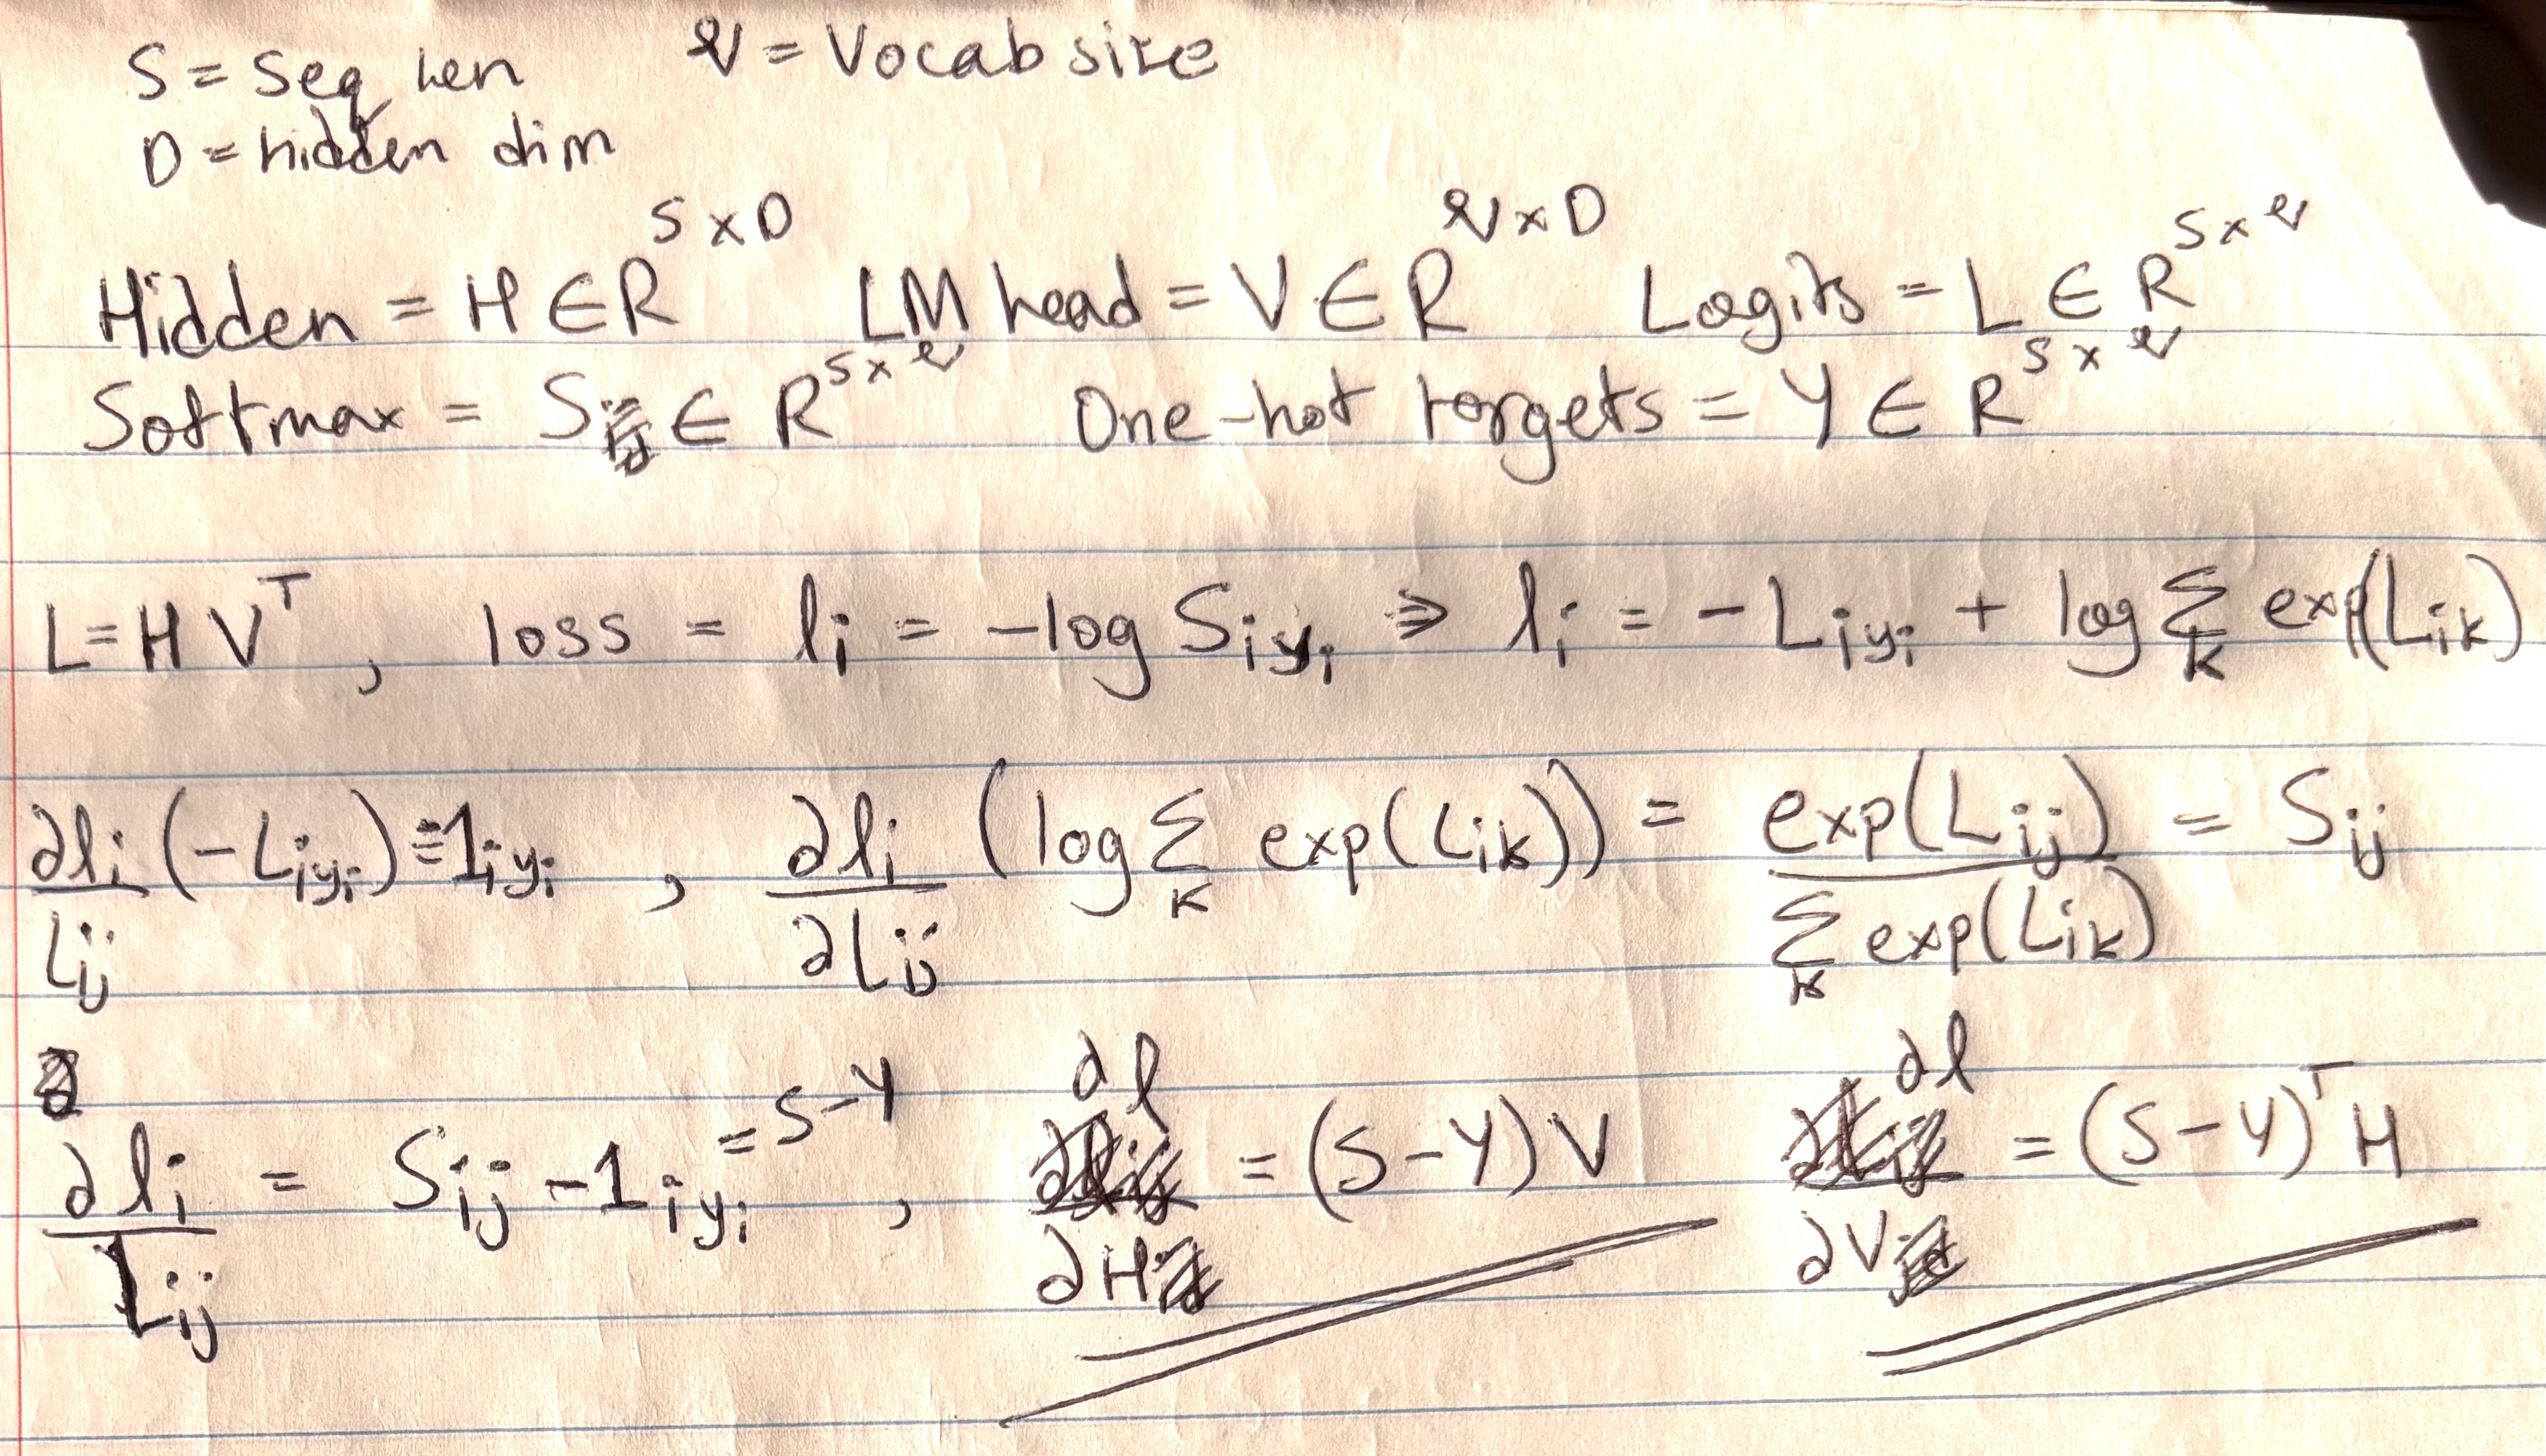 S = Seq Len   𝒱 = Vocab size
D = hidden dim
Hidden = H ∈ R^{S×D}   LM head = V ∈ R^{𝒱×D}   Logits = L ∈ R^{S×𝒱}
Softmax = S ∈ R^{S×𝒱}   One-hot targets = Y ∈ R^{S×𝒱}
L = H V^T , loss = l_i = -log S_{iy_i} ⇒ l_i = -L_{iy_i} + log Σ_k exp(L_{ik})
∂l_i/L_{ij} (-L_{iy_i}) = -1_{iy_i} , ∂l_i/∂L_{ij} (log Σ_k exp(L_{ik})) = exp(L_{ij})/Σ_k exp(L_{ik}) = S_{ij}
∂l_i/L_{ij} = S_{ij} - 1_{iy_i} = S-Y , ∂l/∂H = (S-Y)V   ∂l/∂V = (S-Y)^T H